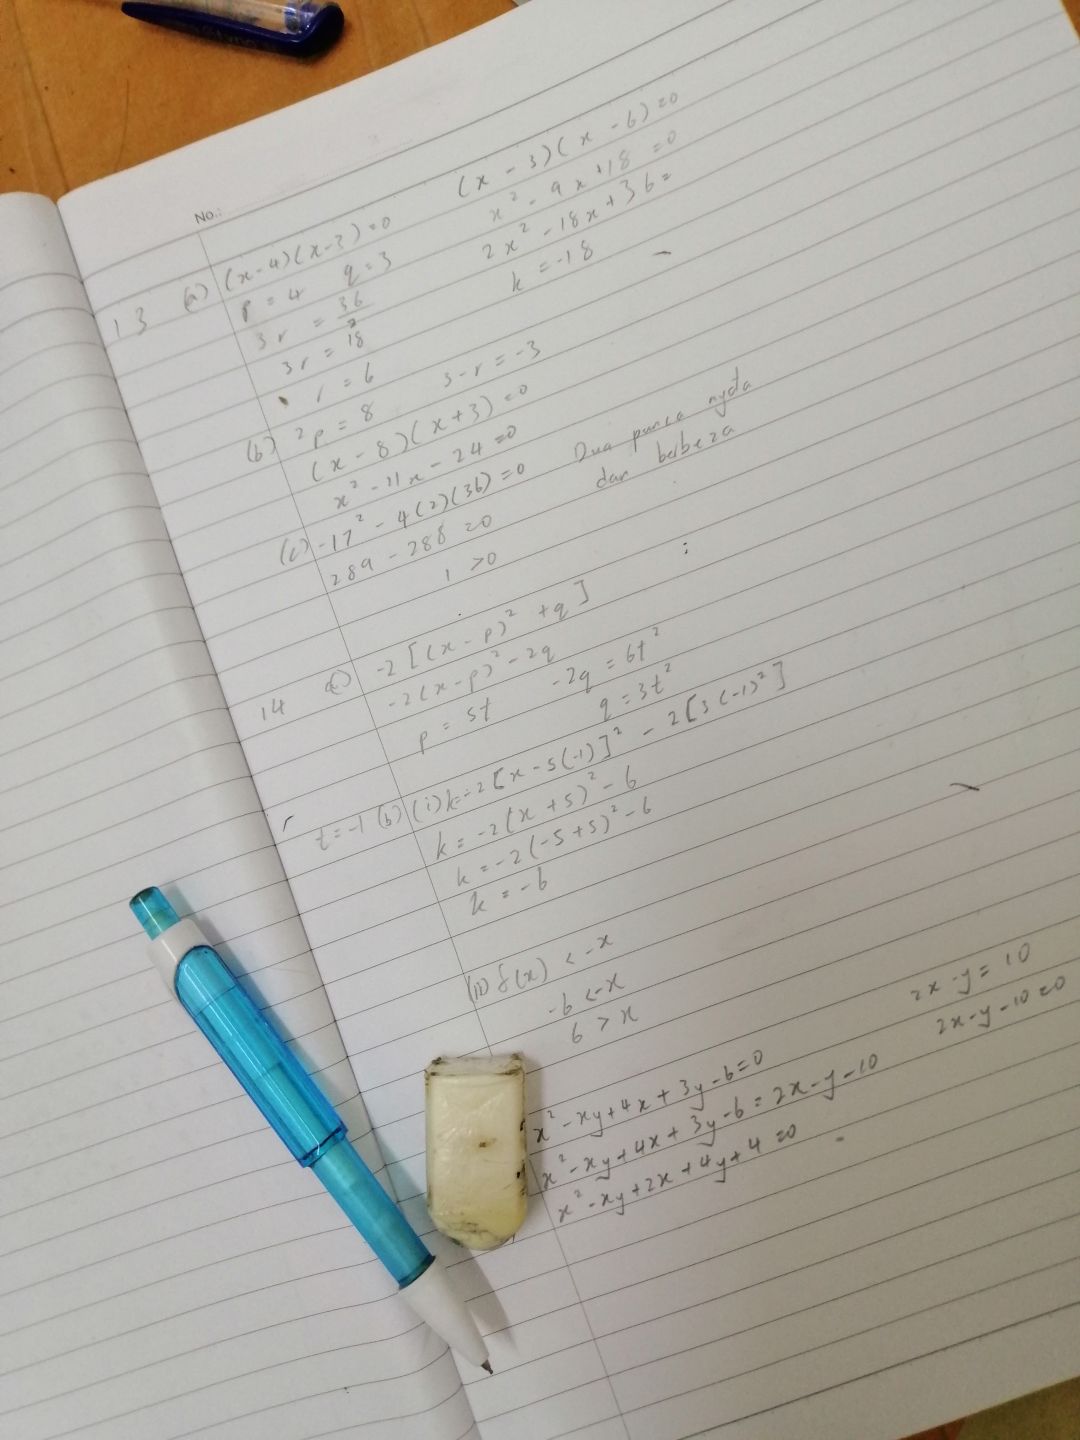 No.:
13 (a) (x-4)(x-3)=0
p = 4 q = 3
3r = 36/2
3r = 18
r = 6
(x - 3)(x - 6)=0
x² - 9x + 18 = 0
2x² - 18x + 36 =
k = -18
(b) 2p = 8 3-r = -3
(x - 8)(x + 3) = 0
x² - 11x - 24 = 0
(c) -17² - 4(2)(36) = 0
289 - 288 = 0
1 > 0
Dua punca nyata
dan berbeza
14 (a) -2[(x - p)² + q]
-2(x-p)² - 2q
p = 5t -2q = 6t²
q = 3t²
t = -1 (b) (i) k = -2[x - 5(-1)]² - 2[3(-1)²]
k = -2(x + 5)² - 6
k = -2(-5+5)² - 6
k = -6
(ii) f(x) < -x
-6 < -x
6 > x
2x - y = 10
2x - y - 10 = 0
x² - xy + 4x + 3y - 6 = 0
x² - xy + 4x + 3y - 6 = 2x - y - 10
x² - xy + 2x + 4y + 4 = 0